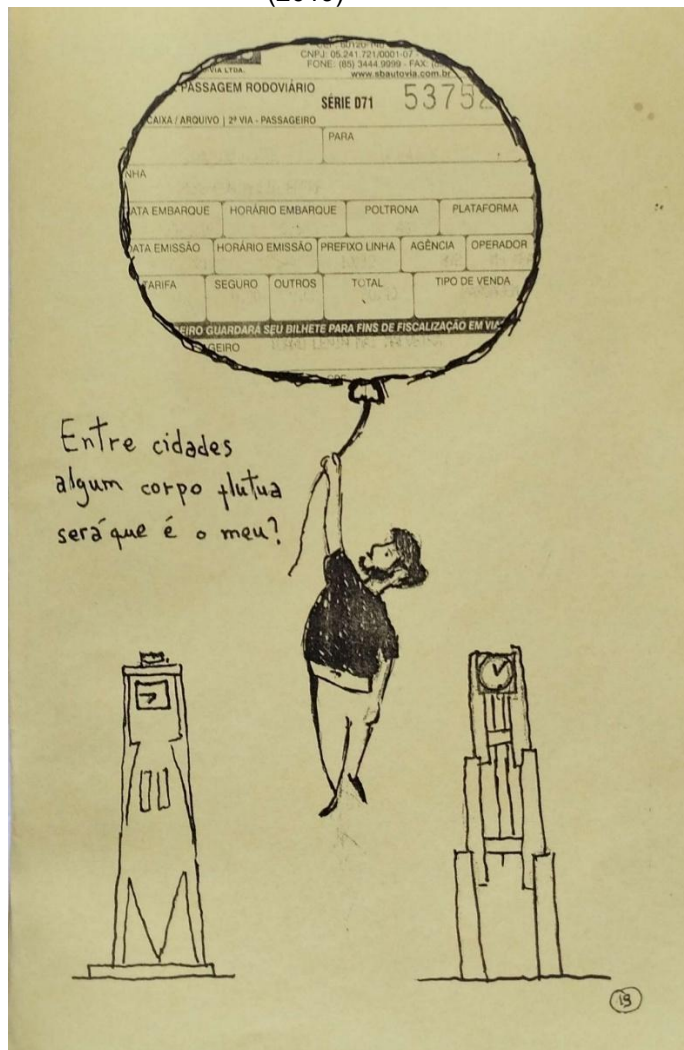 (2019)
CNPJ: 05.241.721/0001-07
FONE: (85) 3444.9999 - FAX:
VIA LTDA.
www.sbautovia.com.br
PASSAGEM RODOVIÁRIO
SÉRIE D71 5375
CAIXA / ARQUIVO | 2ª VIA - PASSAGEIRO
PARA
NHA
ATA EMBARQUE HORÁRIO EMBARQUE POLTRONA PLATAFORMA
DATA EMISSÃO HORÁRIO EMISSÃO PREFIXO LINHA AGÊNCIA OPERADOR
TARIFA SEGURO OUTROS TOTAL TIPO DE VENDA
EIRO GUARDARÁ SEU BILHETE PARA FINS DE FISCALIZAÇÃO EM VIA
AGEIRO
Entre cidades
algum corpo flutua
será que é o meu?
19